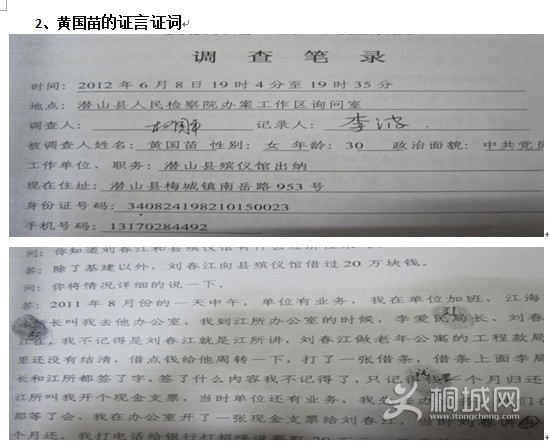 2、黄国苗的证言证词
调 查 笔 录
时间：2012 年 6 月 8 日 19 时 4 分至 19 时 35 分
地点：潜山县人民检察院办案工作区询问室
调查人： 记录人：李波
被调查人姓名：黄国苗 性别：女 年龄：30 政治面貌：中共党员
工作单位、职务：潜山县殡仪馆出纳
现在住址：潜山县梅城镇南岳路 953 号
身份证号码：340824198210150023
手机号码：13170284492
问：你知道刘春江和县殡仪馆有什么经济往来
答：除了基建以外，刘春江向县殡仪馆借过20万块钱。
问：你将情况详细的说一下。
答：2011 年 8 月份的一天中午，单位有业务，我在单位加班，江海
所长叫我去他办公室，我到江所办公室的时候，李爱民局长、刘春
江在，我不记得是刘春江就是江所讲，刘春江做老年公寓的工程款局
里还没有结清，借点钱给他周转一下，打了一张借条，借条上面李局
长和江所都签了字，签了什么内容我不记得了，只记得 一个月归还
江所叫我开个现金支票，当时单位还有业务，我
那等了会，我在办公室开了一张现金支票给刘春江，当时刘春讲
个月还，我打电话给银行打招呼说要取 20
桐城网
www.itongcheng.com